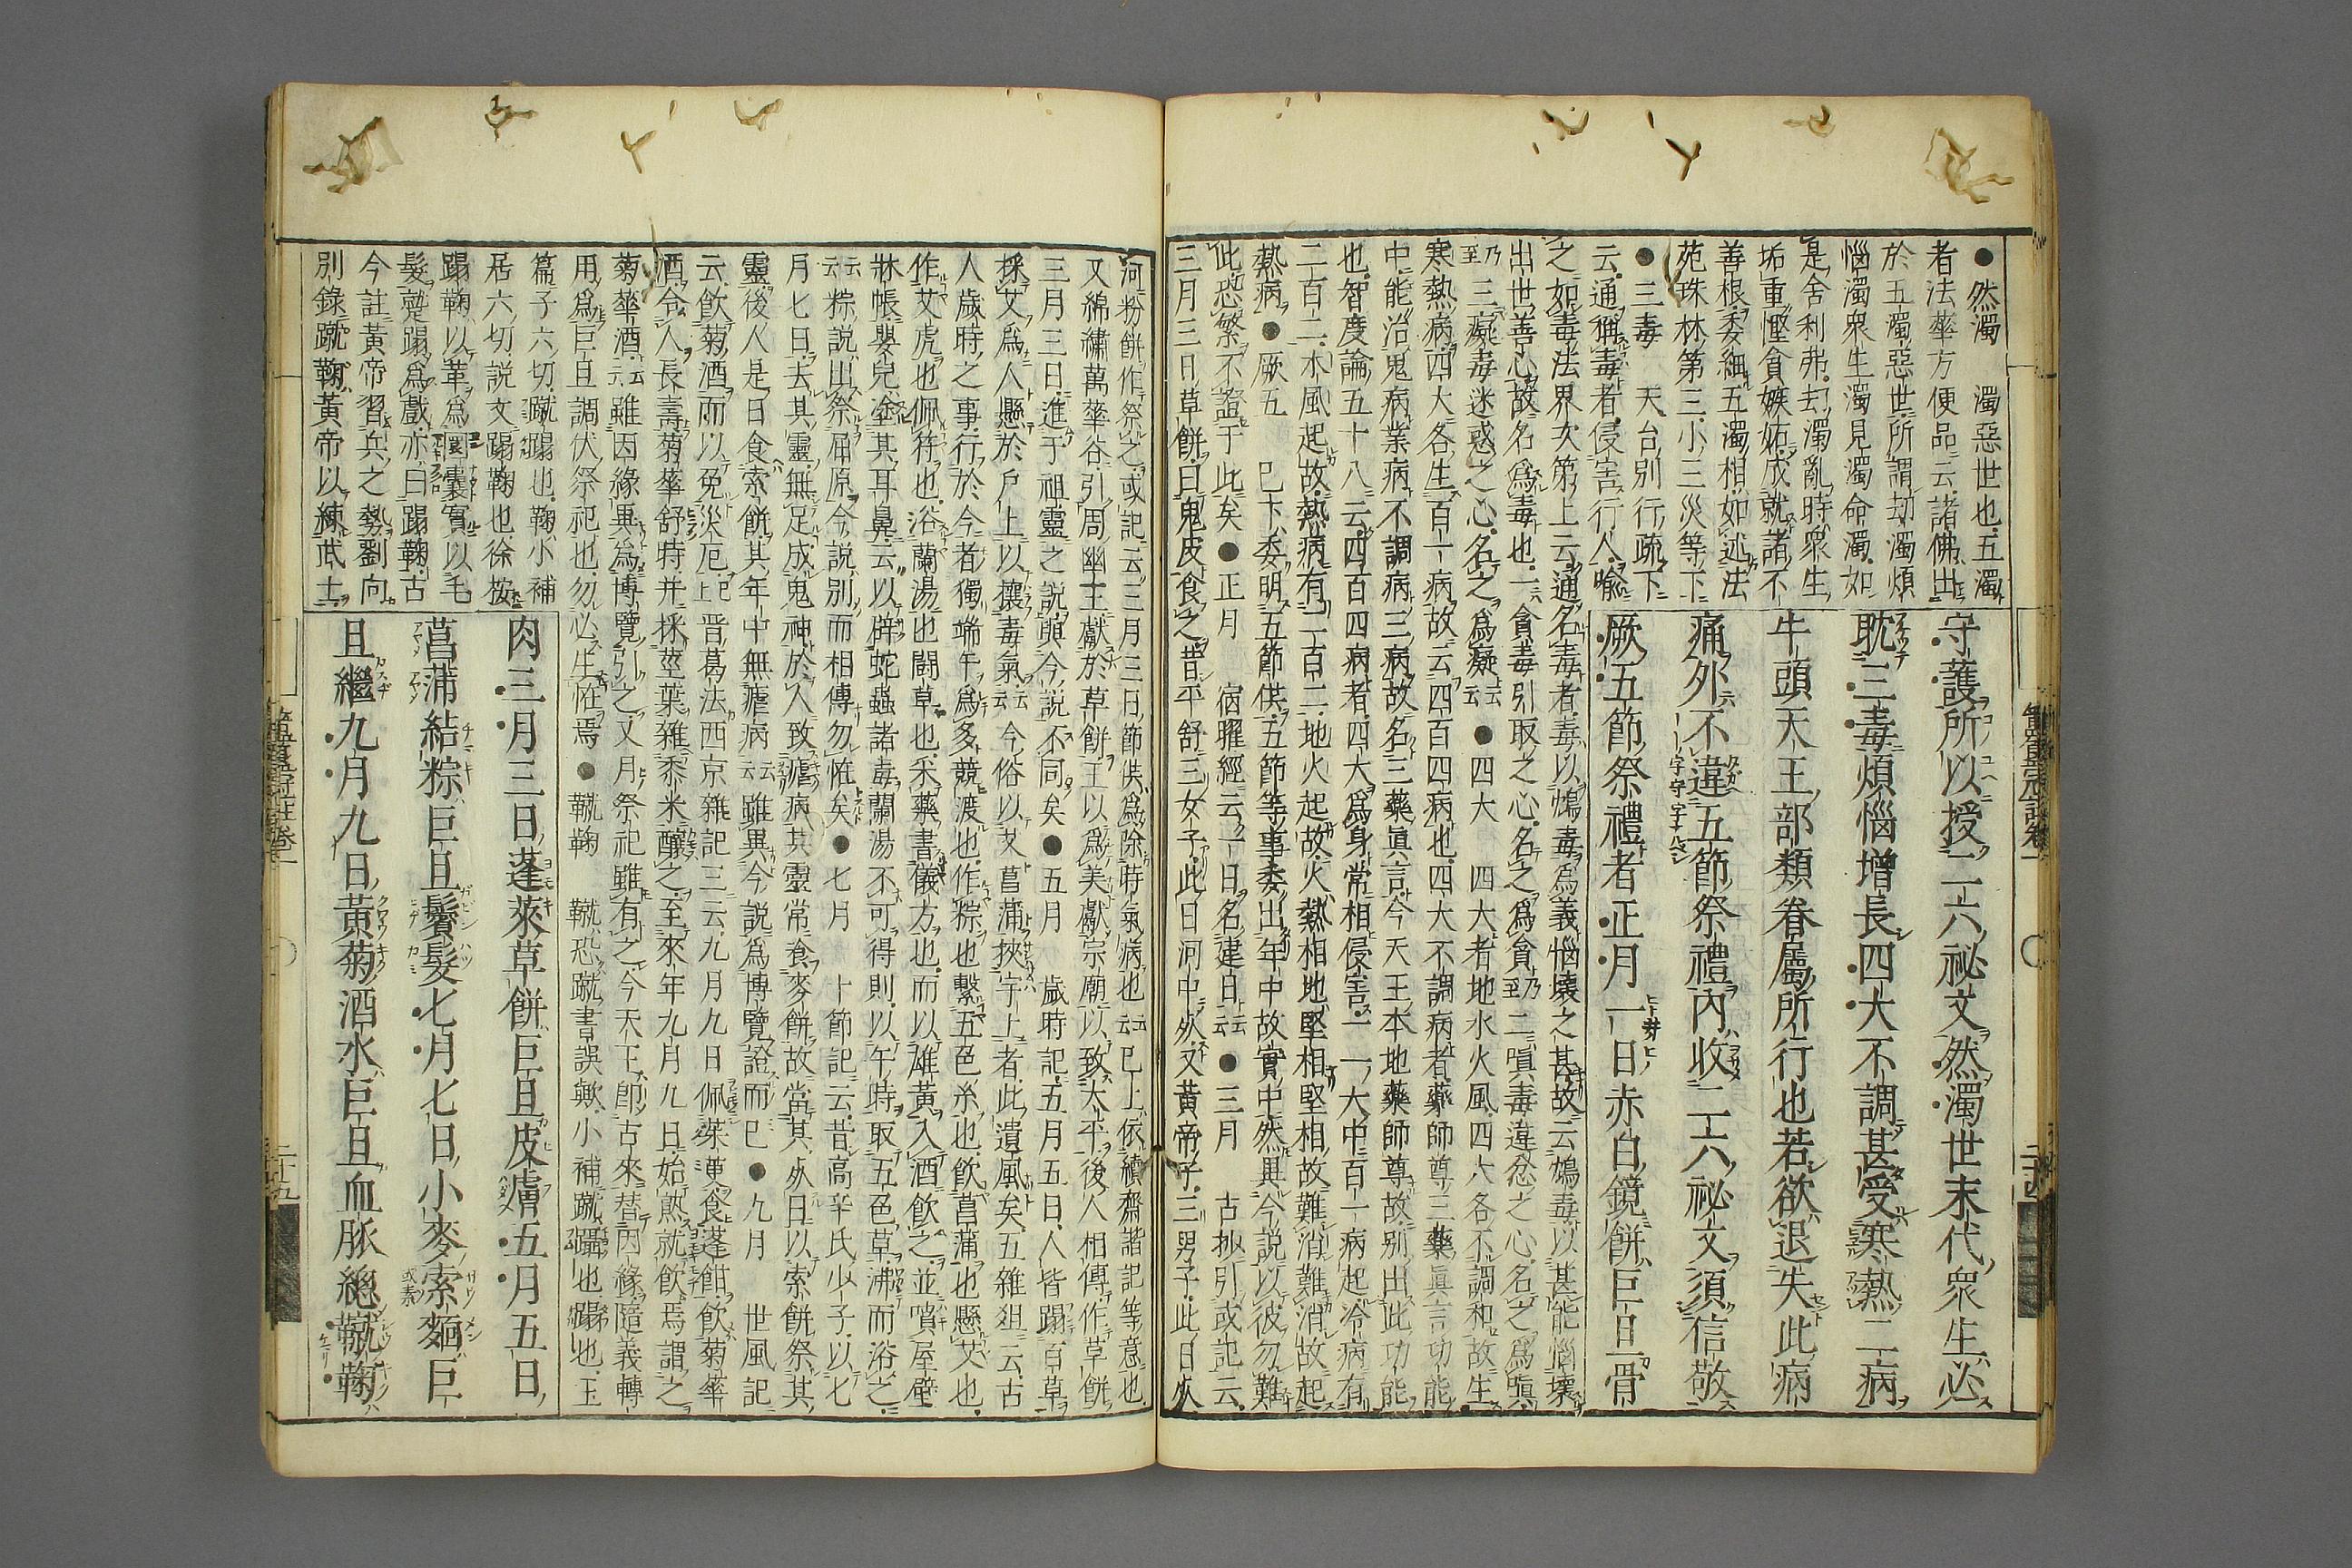 守護所以授二六祕文然濁世末代衆生必
耽三毒煩惱增長四大不調甚受寒熱二病
牛頭天王部類眷屬所行也若欲退失此病
痛外不違五節祭禮內收二六祕文須信敬
厥五節祭禮者正月一日赤白鏡餅巨旦骨
●然濁　濁惡世也五濁
者法華方便品云諸佛出
於五濁惡世所謂劫濁煩
惱濁衆生濁見濁命濁如
是舍利弗劫濁亂時衆生
垢重慳貪嫉妬成就諸不
善根委細五濁相如述法
苑珠林第三小三災等下
●三毒　天台別行疏下
云通稱毒者侵害行人喩
之如毒法界次第上云通名毒者毒以鴆毒爲義惱壞之甚故云鴆毒以甚能惱壞
出世善心故名爲毒也一貪毒引取之心名之爲貪乃至二嗔毒違忿之心名之爲嗔
乃至三癡毒迷惑之心名之爲癡云云●四大　四大者地水火風四大各不調和故生
寒熱病四大各生百一病故云四百四病也四大不調病者藥師尊三藥眞言功能
中能治鬼病業病不調病三病故名三藥眞言今天王本地藥師尊故別出此功能
也智度論五十八云四百四病者四大爲身常相侵害一一大中百一病起冷病有
二百二水風起故熱病有二百二地火起故火熱相地堅相堅相故難消難消故起
熱病●厥五　已下委明五節供五節等事委出年中故實中然異今說以彼勿難
此恐繁不證于此矣●正月　宿曜經云一日名建日云云●三月　古抄引或記云
三月三日草餅曰鬼皮食之昔平舒三女子此日河中死又黃帝子三男子此日死
河粉餅作祭之或記云三月三日節供爲除時氣病也云云已上依續齋諧記等意也
又綿繡萬華谷引周幽王獻於草餅王以爲美獻宗廟以致大平後人相傳作草餅
三月三日進于祖靈之說與今說不同矣●五月　歲時記五月五日人皆蹋百草
採艾爲人懸於戶上以攘毒氣云云今俗以艾菖蒲挾宇上者此遺風矣五雜俎云古
人歲時之事行於今者獨端午爲多競渡也作粽也繫五色糸也飲菖蒲也懸艾也
作艾虎也佩符也浴蘭湯也鬪草也采藥書儀方也而以雄黃入酒飲之並噴屋壁
牀帳嬰兒塗其耳鼻云以辟蛇蟲諸毒蘭湯不可得則以午時取五色草沸而浴之
云云粽說山祭屈原今說別而相傳勿恠矣●七月　十節記云昔高辛氏少子以七
月七日去其靈無足成鬼神於人致瘧病其靈常食麥餅故當其死日以索餅祭其
靈後人是日食索餅其年中無瘧病云云雖異今說爲博覽證而已●九月　世風記
云飲菊酒而以免災厄上記晉葛法西京雜記三云九月九日佩茱萸食蓬餌飲菊華
酒令人長壽菊華舒時并採莖葉雜黍米釀之至來年九月九日始熟就飲焉謂之
菊華酒云云雖因緣異爲博覽引之又月祭祀雖有之今天王卽古來替因緣隨義轉
用爲巨旦調伏祭祀也勿必生恠焉●蹴鞠　蹴恐蹴書誤歟小補蹴躡也蹋也玉
篇子六切蹴蹋也鞠小補
居六切說文蹋鞠也徐按
蹋鞠以革爲圜囊實以毛
髮蹵蹋爲戲亦曰蹋鞠古
今註黃帝習兵之勢劉向
別錄蹴鞠黃帝以練武士
肉三月三日蓬萊草餅巨旦皮膚五月五日
菖蒲結粽巨旦鬢髮七月七日小麥索麵巨
旦繼九月九日黃菊酒水巨旦血脈總蹴鞠